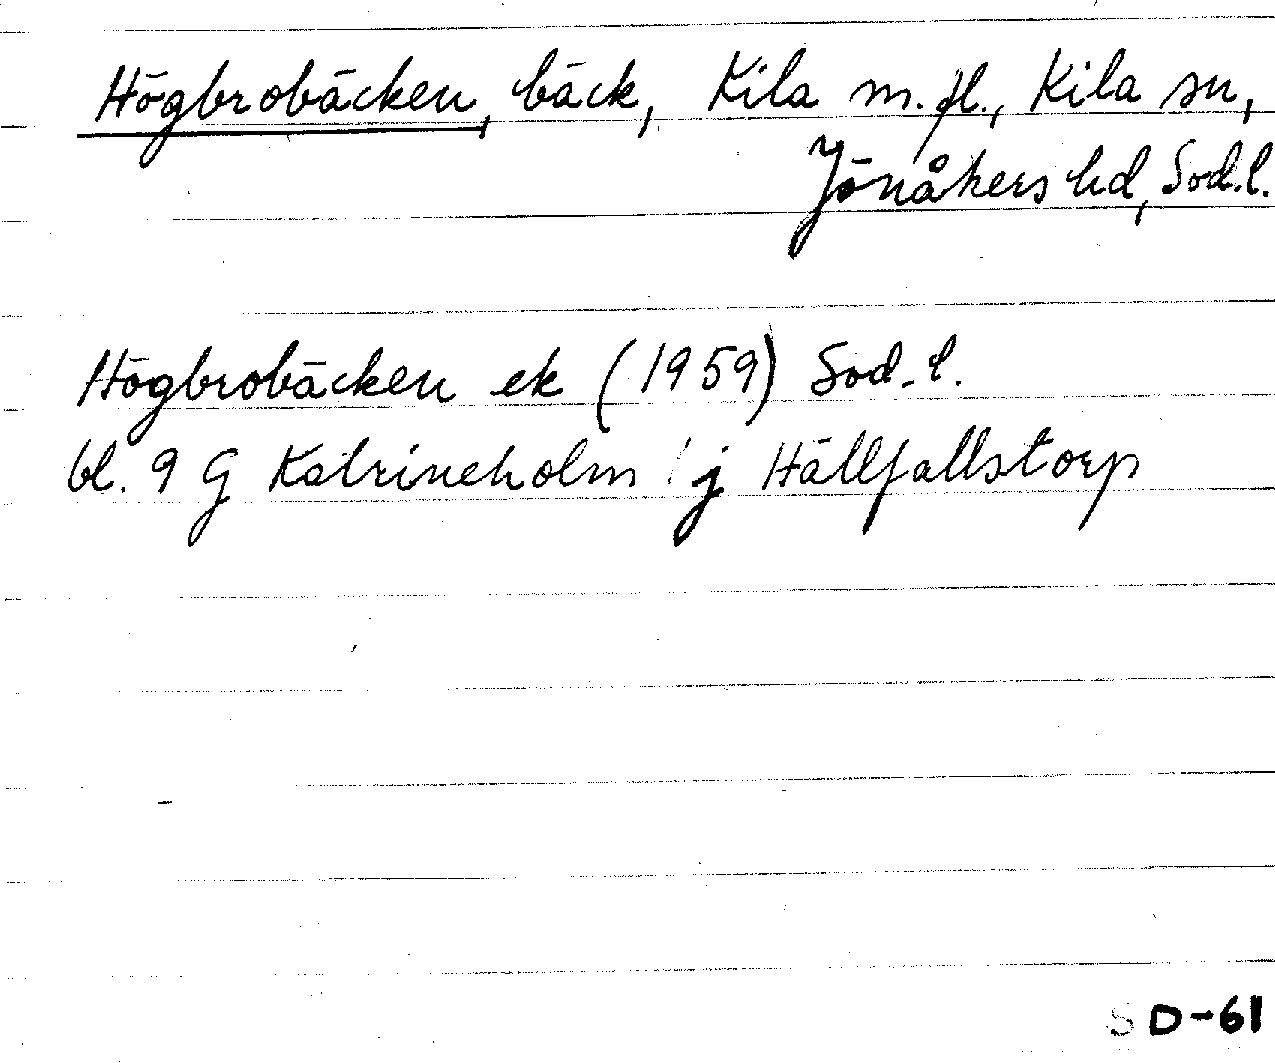 Högbrobäcken, bäck, Kila m.fl., Kila sn,
Jönåkers hd, Söd.l.
Högbrobäcken ek (1959) Söd.l.
bl. 9 G Katrineholm j Hällfallstorp
SD-61